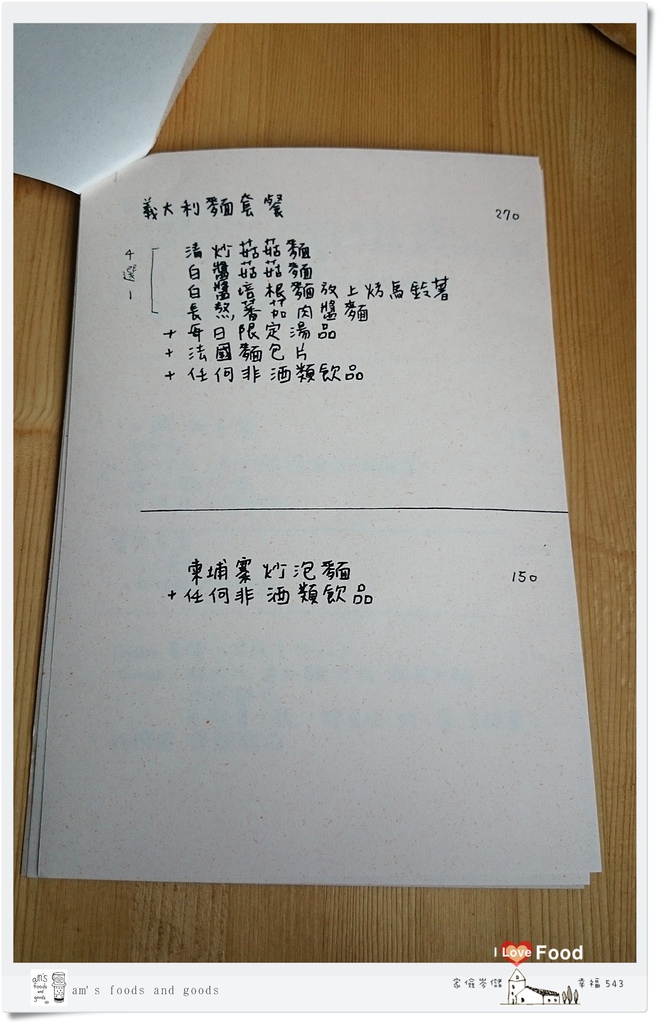 義大利麵套餐 270
4選1
清炒菇菇麵
白醬菇菇麵
白醬培根麵放上烤馬鈴薯
長熬蕃茄肉醬麵
+ 每日限定湯品
+ 法國麵包片
+ 任何非酒類飲品
柬埔寨炒泡麵 150
+ 任何非酒類飲品
I Love Food
am's foods and goods
am's foods and goods
幸福 543